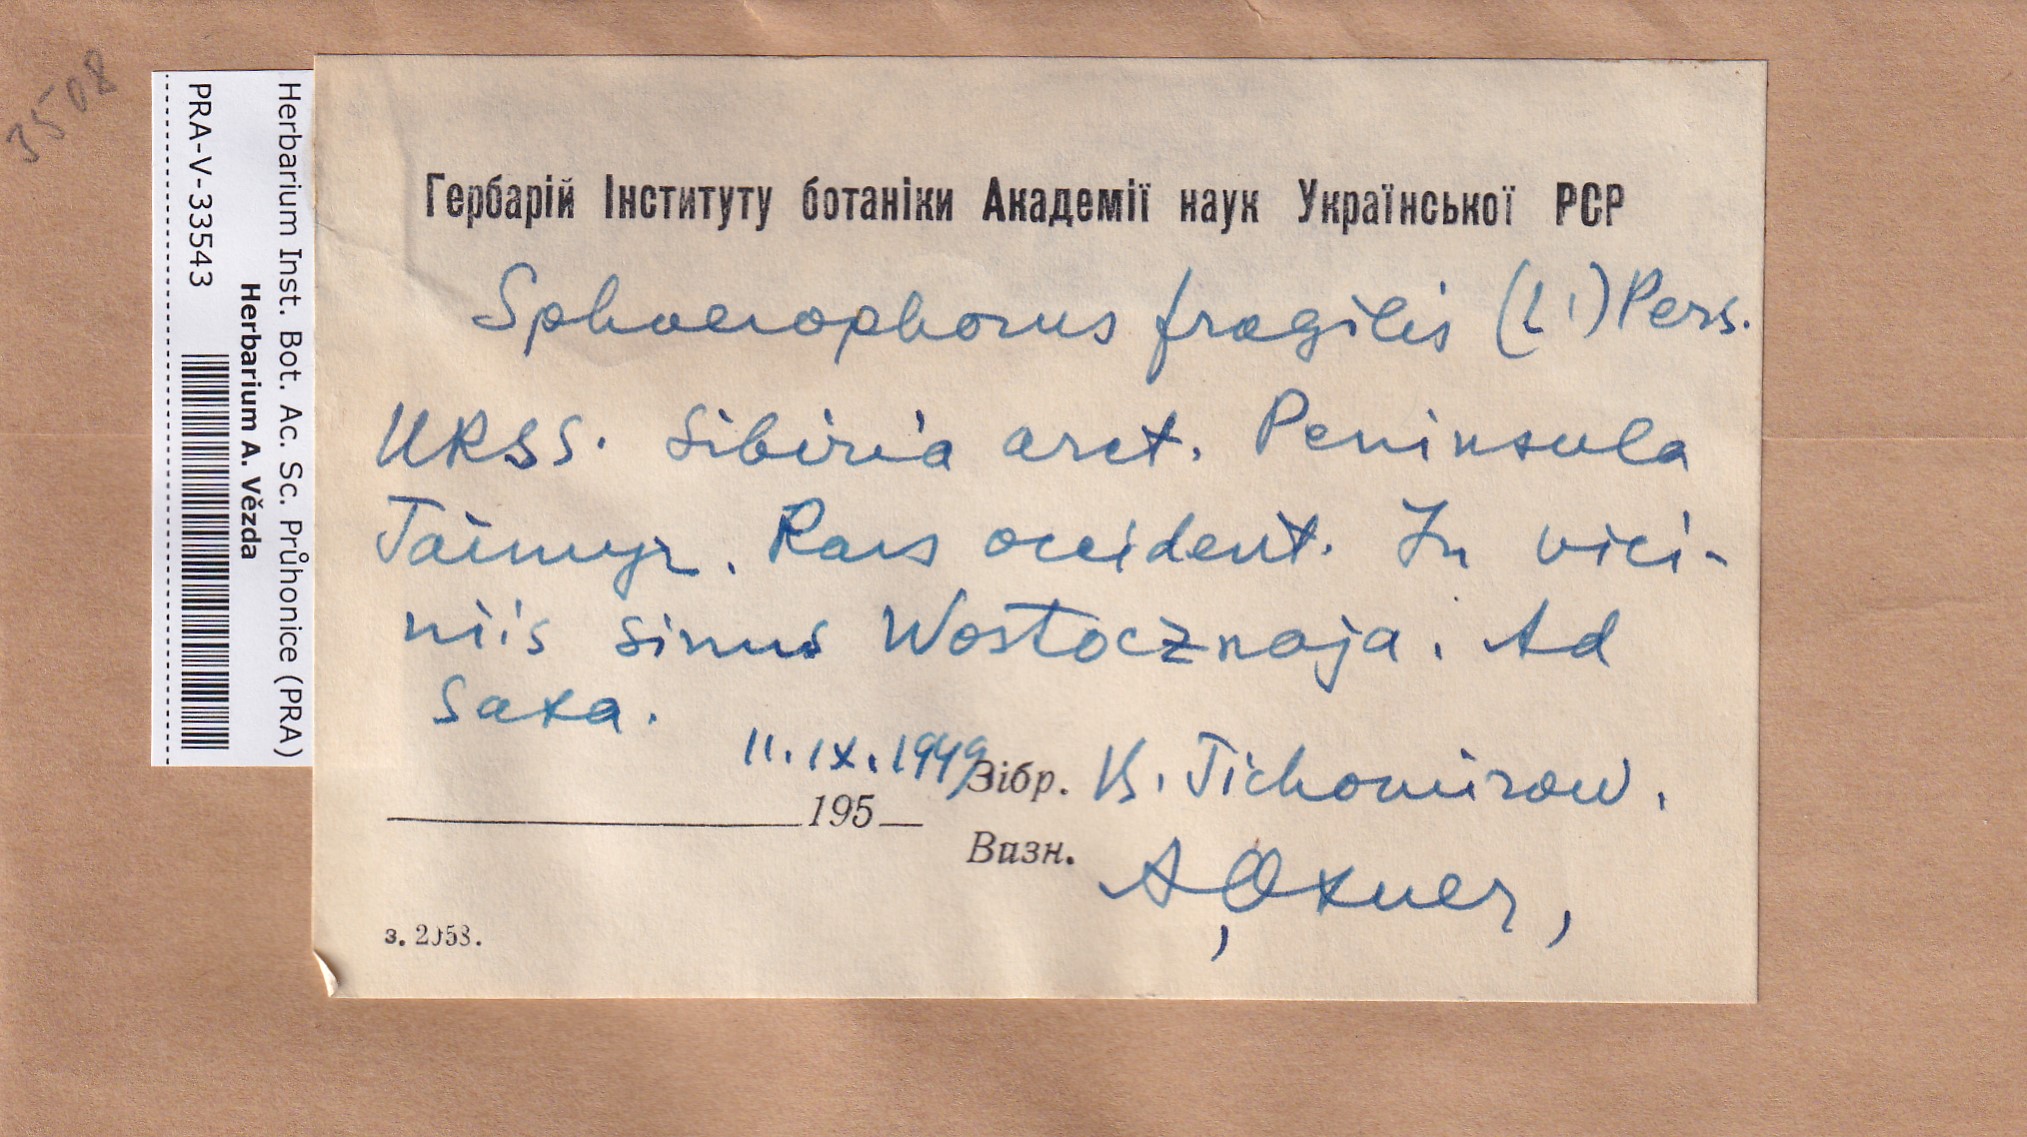 3508
Herbarium Inst. Bot. Ac. Sc. Průhonice (PRA)
Herbarium A. Vězda
PRA-V-33543
Гербарій Інституту ботаніки Академії наук Української РСР
Sphaerophorus fragilis (L.) Pers.
URSS. Sibiria arct. Peninsula
Taimyr. Pars occident. In vici-
niis sinus Wostocznaja. Ad
saxa.
11.IX.1949 Зібр. B. Tichomirow.
195
Визн. A. Oxner,
з. 2058.